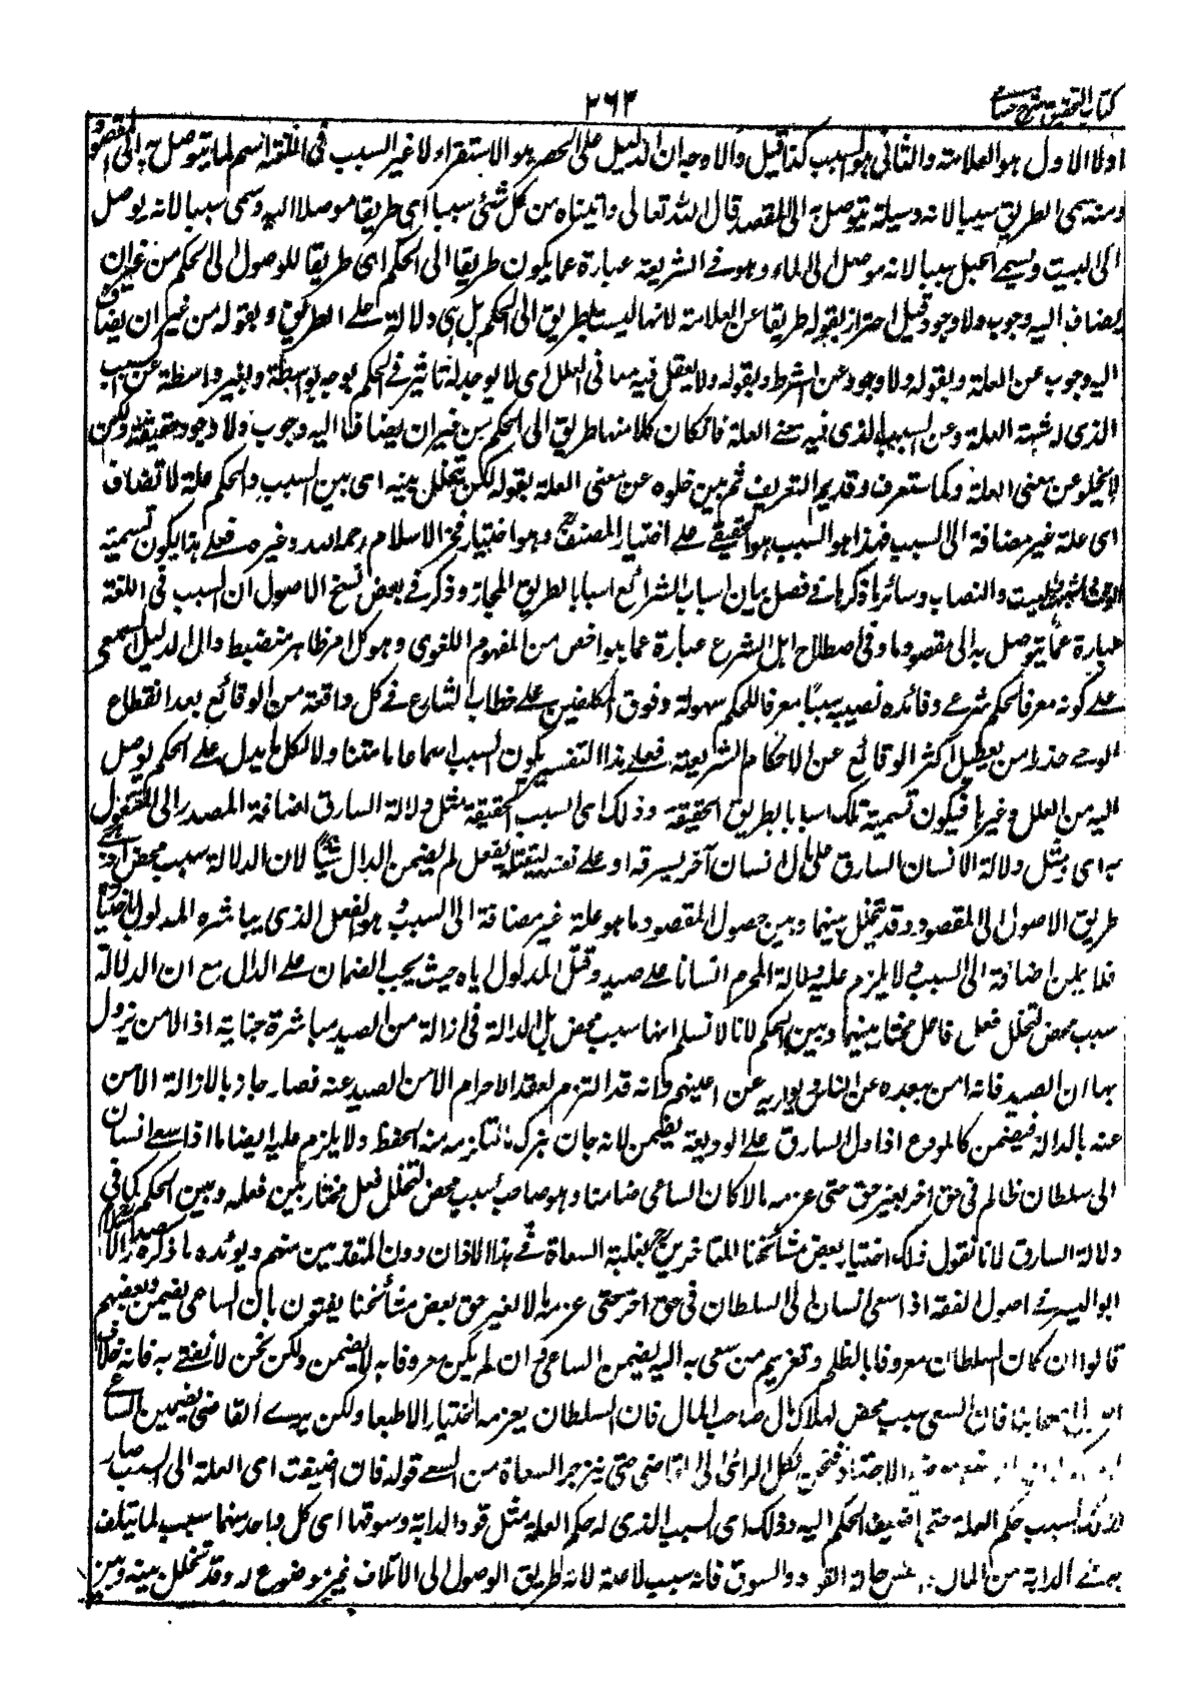 كتاب التحقيق شرح حسامي
٢٦٣
اولا الاول هو العلامة والثاني هو السبب كذا قيل والاوجه ان الدليل على الحصر هو الاستقراء لا غير السبب في اللغة اسم لما يتوصل به الى المقصود
ومنه سمى الطريق سببا لانه وسيلة يتوصل به الى المقصد قال الله تعالى واتيناه من كل شئ سببا اى طريقا موصلا اليه وسمى سببا لانه يوصل
الى البيت ويسمى الحبل سببا لانه موصل الى الماء وهو في الشريعة عبارة عما يكون طريقا الى الحكم اى طريقا للوصول الى الحكم من غير ان
يضاف اليه وجوب ولا وجود وقيل احترز بقوله طريقا عن العلامة لانها ليست بطريق الى الحكم بل هى دلالة على الطريق وبقوله من غير ان يضاف
اليه وجوب عن العلة وبقوله ولا وجود عن الشرط وبقوله ولا يعقل فيه معانى العلل اى لا يوجد له تاثير في الحكم بوجه بواسطة وبغير واسطة عن السبب
الذى له شبهة العلة وعن السبب الذى فيه معنى العلة فان كان كلا منها طريق الى الحكم من غير ان يضاف اليه وجوب ولا وجود حقيقة ولكن
لا يخلو عن معنى العلة وكما ستعرف وقد يم التعريف ثم بين خلوه عن معنى العلة بقوله لكن يتخلل بينه اى بين السبب والحكم علة لا تضاف
اى علة غير مضافة الى السبب فهذا هو السبب هو الحقيقي على اختيار المصنف وهو اختيار فخر الاسلام رحمه الله وغيره فعلى هذا يكون تسمية
الوقت والشهر والبيت والنصاب وسائر ما ذكرنا في فصل بيان اسباب الشرائع اسبابا بطريق المجاز وذكر في بعض نسخ الاصول ان السبب في اللغة
عبارة عما يتوصل به الى مقصود ما وفى اصطلاح اهل الشرع عبارة عما هو اخص من المفهوم اللغوى وهو كل امر ظاهر منضبط دال الدليل السمعى
على كونه معرفا لحكم شرعى وفائدة نصيبه سببا معرفا للحكم سهولة وقوف المكلفين على خطاب الشارع في كل واقعة من الوقائع بعد انقطاع
الوحى حذرا من تعطيل اكثر الوقائع عن الاحكام الشريعة فعلى هذا التفسير يكون السبب اسما عاما متناولا لكل ما يدل على الحكم يوصل
اليه من العلل وغيرها فيكون تسمية تلك اسبابا بطريق الحقيقة وذلك اى السبب الحقيقة مثل دلالة السارق اضافة المصدر الى المفعول
به اى مثل دلالة الانسان السارق على مال انسان آخر يسرقه او على نفسه ليقتله ففعل لم يضمن الدال شيئا لان الدلالة سبب محض اذ هى
طريق الاصول الى المقصود وقد تخلل بينها وبين حصول المقصود ما هو علة غير مضافة الى السبب وهو الفعل الذى يباشره المدلول باختياره
فلا يمكن اضافة الى السبب ولا يلزم عليه دلالة المحرم انسانا على صيد وقتل المدلول اياه حيث يجب الضمان على الدال مع ان الدلالة
سبب محض لتخلل فعل فاعل مختار بينها وبين الحكم لانا لا نسلم انها سبب محض بل الدلالة في ازالة من الصيد مباشرة جناية اذ الامن يزول
بها ان الصيد فانه امن ببعده عن الناس وتواريه عن اعينهم وانه قد التزم بعقد الاحرام الامن الصيد عنه فصار جانيا بالازالة الامن
عنه بالدلالة فيضمن كالمودع اذا دل السارق على الوديعة يضمن لانه جان بترك ما التزمه من الحفظ ولا يلزم عليه ايضا ما اذا سعى انسان
الى سلطان ظالم في حق اخر بغير حق حتى غرمه مالا كان الساعى ضامنا وهو صاحب سبب محض لتخلل فعل مختار بين فعله وبين الحكم كما في
دلالة السارق لانا نقول ذلك اختيار بعض مشائخنا المتاخرين لغلبة السعاة في هذا الاذان دون المتقدمين منهم ويؤيده ما ذكره صدر الاسلام
ابو اليسر في اصول الفقه اذا سعى انسان الى السلطان في حق اخر حتى غرمه مالا بغير حق بعض مشائخنا يفتون بان الساعى يضمن وبعضهم
قالوا ان كان السلطان معروفا بالظلم وتغريم من سعى به اليه يضمن الساعى وان لم يكن معروفا به لا يضمن ولكن نحن لا نفتى به فانه خلاف
اصول اصحابنا فان السعى سبب محض لهلاك مال صاحب المال فان السلطان يغرمه اختيارا لا طبعا ولكن يرى القاضى تضمين الساعى
موضع الاجتهاد فنحن نكل الراى الى القاضى حتى ينزجر السعاة من السعى قوله فان اضيفت اى العلة الى السبب صار
للسبب حكم العلة حتى اضيف الحكم اليه وذلك اى السبب الذى له حكم العلة مثل قود الدابة وسوقها اى كل واحد منهما سبب لما يتلف
بوطئ الدابة من المال حالة القود والسوق فانه سبب لا علة لانه طريق الوصول الى الاتلاف غير موضوع له وقد تخلل بينه وبين